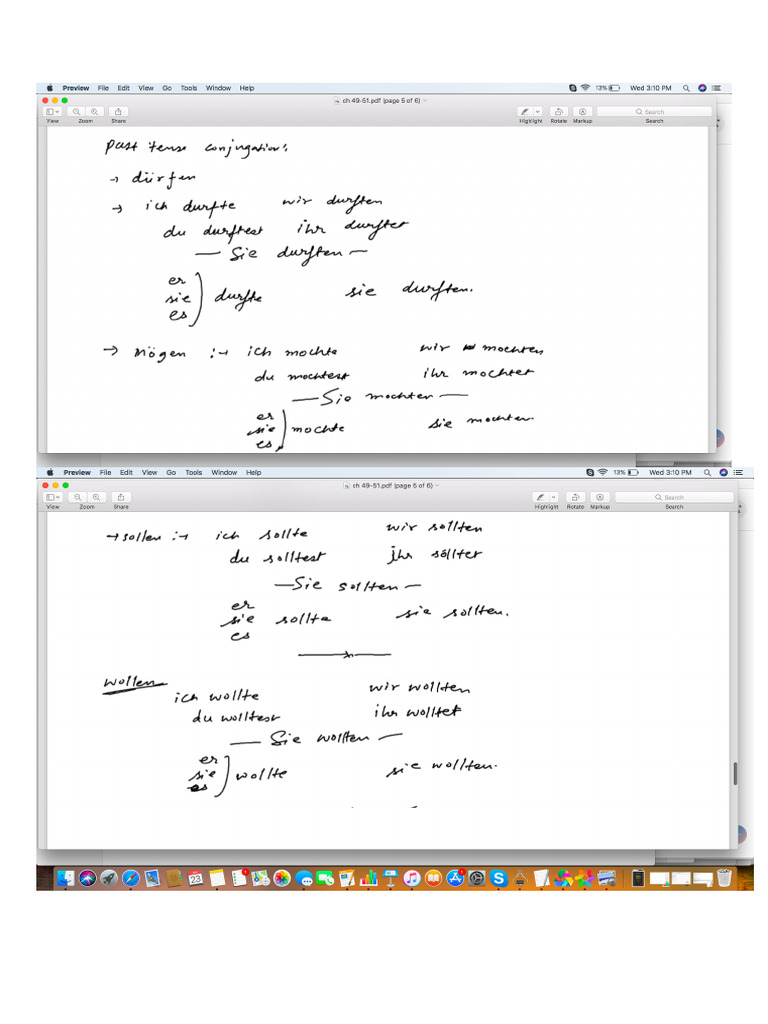 Preview File Edit View Go Tools Window Help 13% Wed 3:10 PM
ch 49-51.pdf (page 5 of 6)
View Zoom Share Highlight Rotate Markup Search
Search
Past tense conjugations:
→ dürfen
→ ich durfte wir durften
du durftest ihr durftet
— Sie durften —
er
sie durfte sie durften.
es
→ mögen :→ ich mochte wir mochten
du mochtest ihr mochtet
— Sie mochten —
er
sie mochte sie mochten
es
Preview File Edit View Go Tools Window Help 13% Wed 3:10 PM
ch 49-51.pdf (page 5 of 6)
View Zoom Share Highlight Rotate Markup Search
Search
→ sollen :→ ich sollte wir sollten
du solltest ihr solltet
— Sie sollten —
er
sie sollte sie sollten.
es
wollen
ich wollte wir wollten
du wolltest ihr wolltet
— Sie wollten —
er
sie wollte sie wollten.
es
23